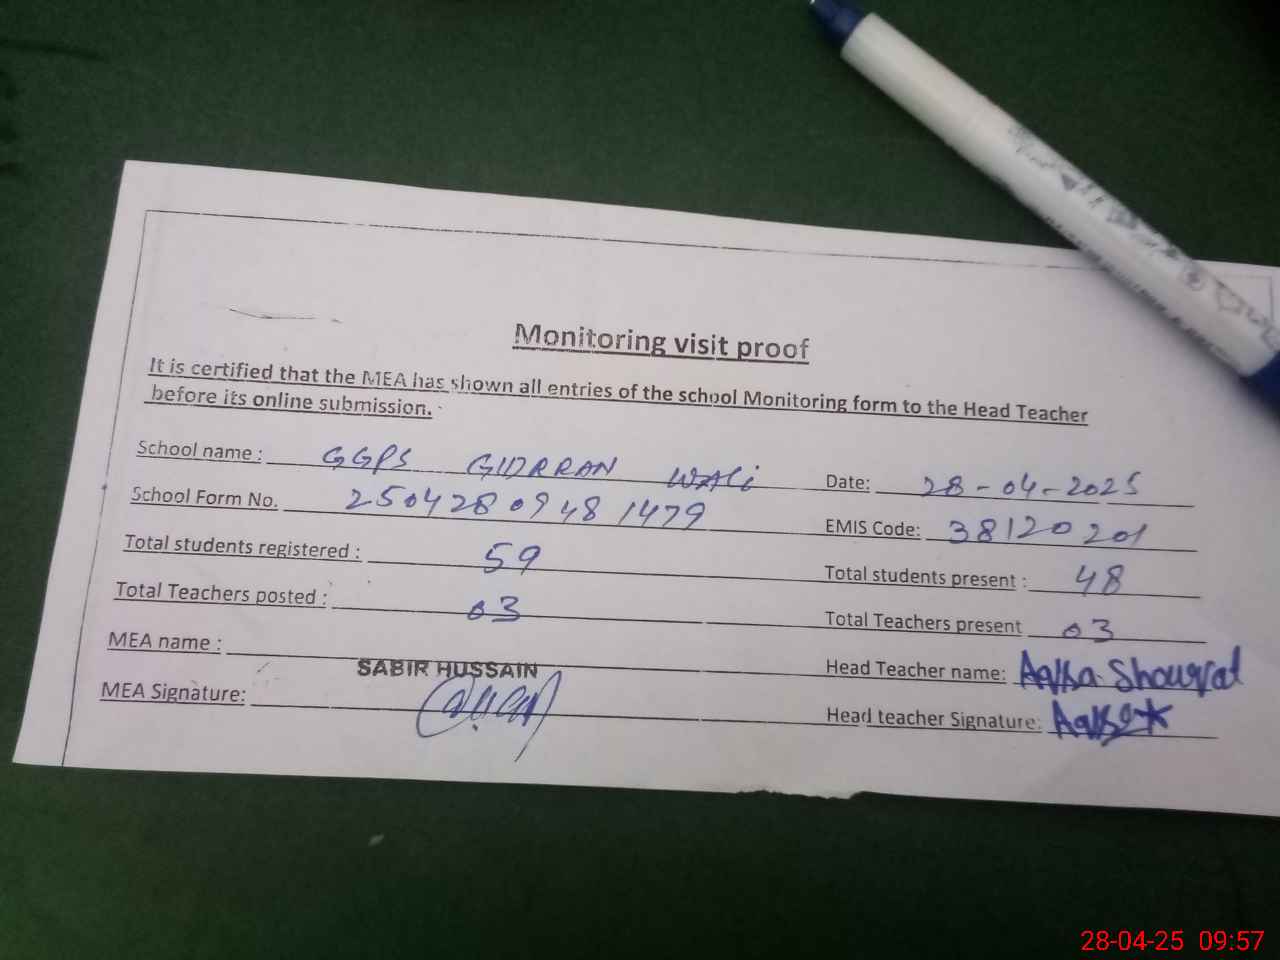 Monitoring visit proof
It is certified that the MEA has shown all entries of the school Monitoring form to the Head Teacher
before its online submission.
School name : GGPS GIDRRAN WALi Date: 28-04-2025
School Form No. 250428 09 48 1479 EMIS Code: 38120201
Total students registered : 59 Total students present : 48
Total Teachers posted : 03 Total Teachers present 03
MEA name : SABIR HUSSAIN Head Teacher name:
MEA Signature: Head teacher Signature:
28-04-25 09:57